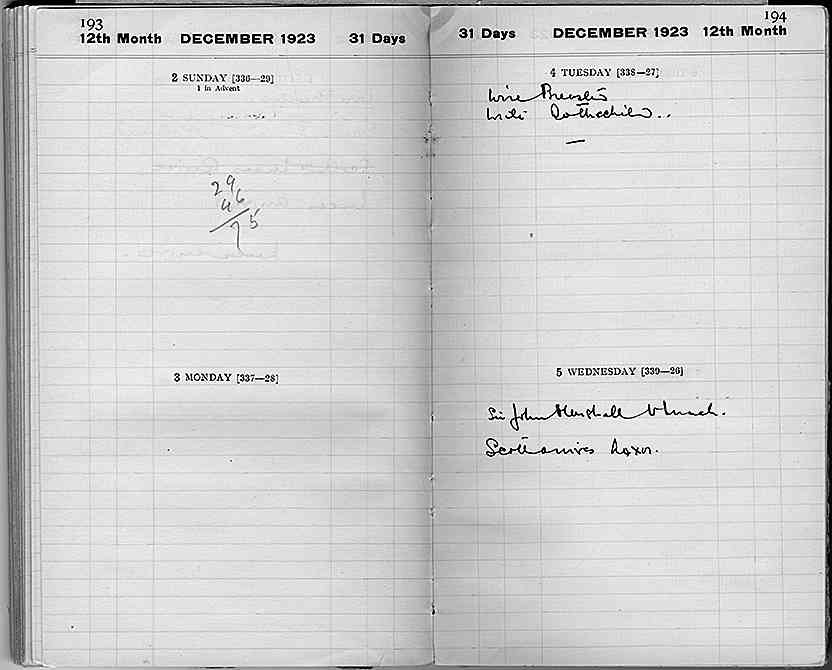 193
12th Month DECEMBER 1923 31 Days
2 SUNDAY [336—29]
1 in Advent
29
46
75
3 MONDAY [337—28]
194
31 Days DECEMBER 1923 12th Month
4 TUESDAY [338—27]
Wire
Write Rothschild..
—
5 WEDNESDAY [339—26]
Sir John Marshall to lunch.
Scott arrives Luxor.